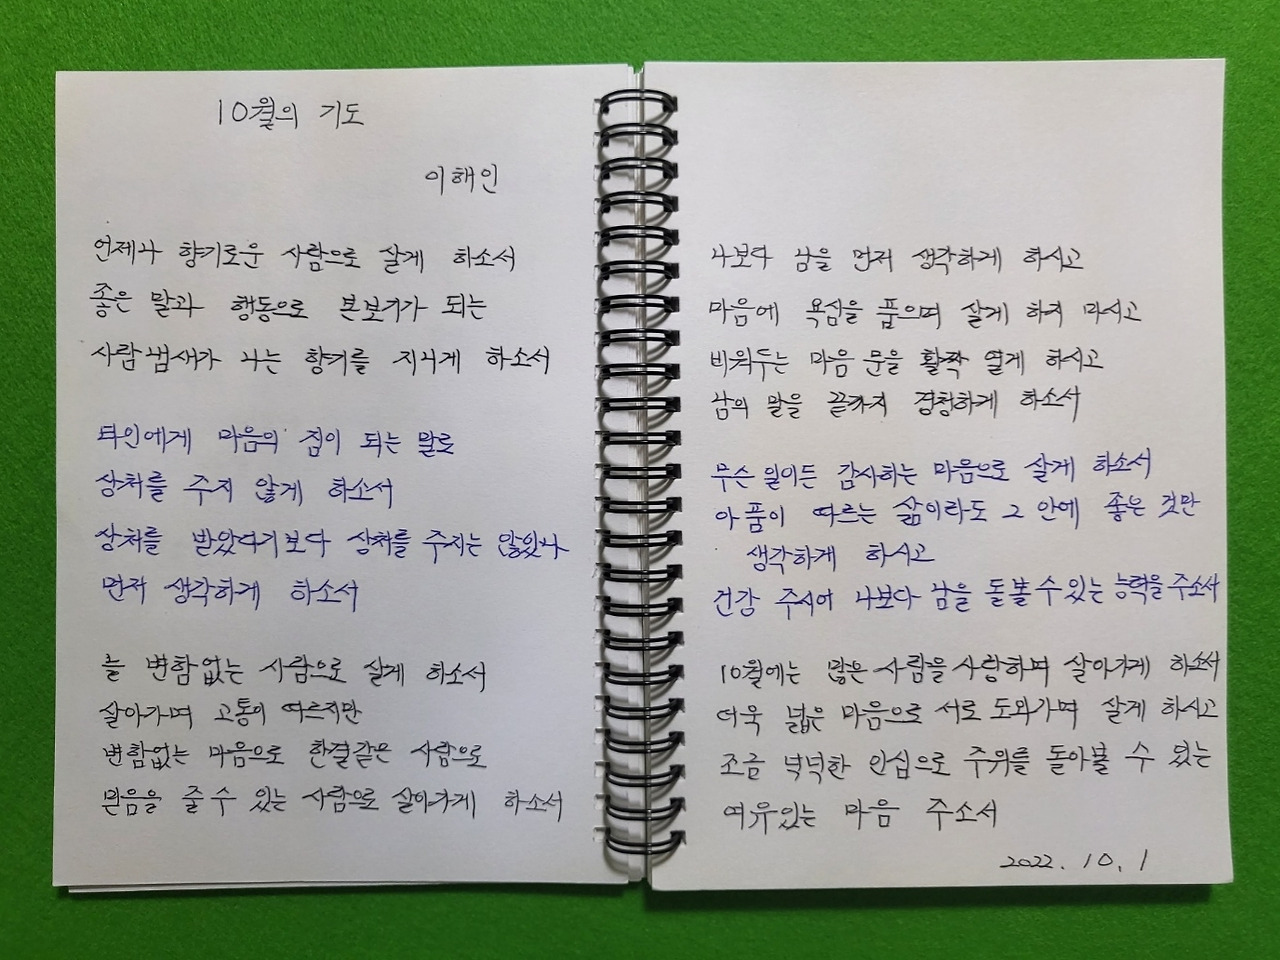 10월의 기도
이해인
언제나 향기로운 사람으로 살게 하소서
좋은 말과 행동으로 본보기가 되는
사람냄새가 나는 향기를 지니게 하소서
타인에게 마음의 짐이 되는 말로
상처를 주지 않게 하소서
상처를 받았다기보다 상처를 주지는 않았나
먼저 생각하게 하소서
늘 변함없는 사람으로 살게 하소서
살아가며 고통이 따르지만
변함없는 마음으로 한결같은 사람으로
믿음을 줄 수 있는 사람으로 살아가게 하소서
나보다 남을 먼저 생각하게 하시고
마음에 욕심을 품으며 살게 하지 마시고
비워두는 마음 문을 활짝 열게 하시고
남의 말을 끝까지 경청하게 하소서
무슨 일이든 감사하는 마음으로 살게 하소서
아픔이 따르는 삶이라도 그 안에 좋은 것만
생각하게 하시고
건강 주시어 나보다 남을 돌볼 수 있는 능력을 주소서
10월에는 많은 사람을 사랑하며 살아가게 하소서
더욱 넓은 마음으로 서로 도와가며 살게 하시고
조금 넉넉한 인심으로 주위를 돌아볼 수 있는
여유있는 마음 주소서
2022. 10. 1